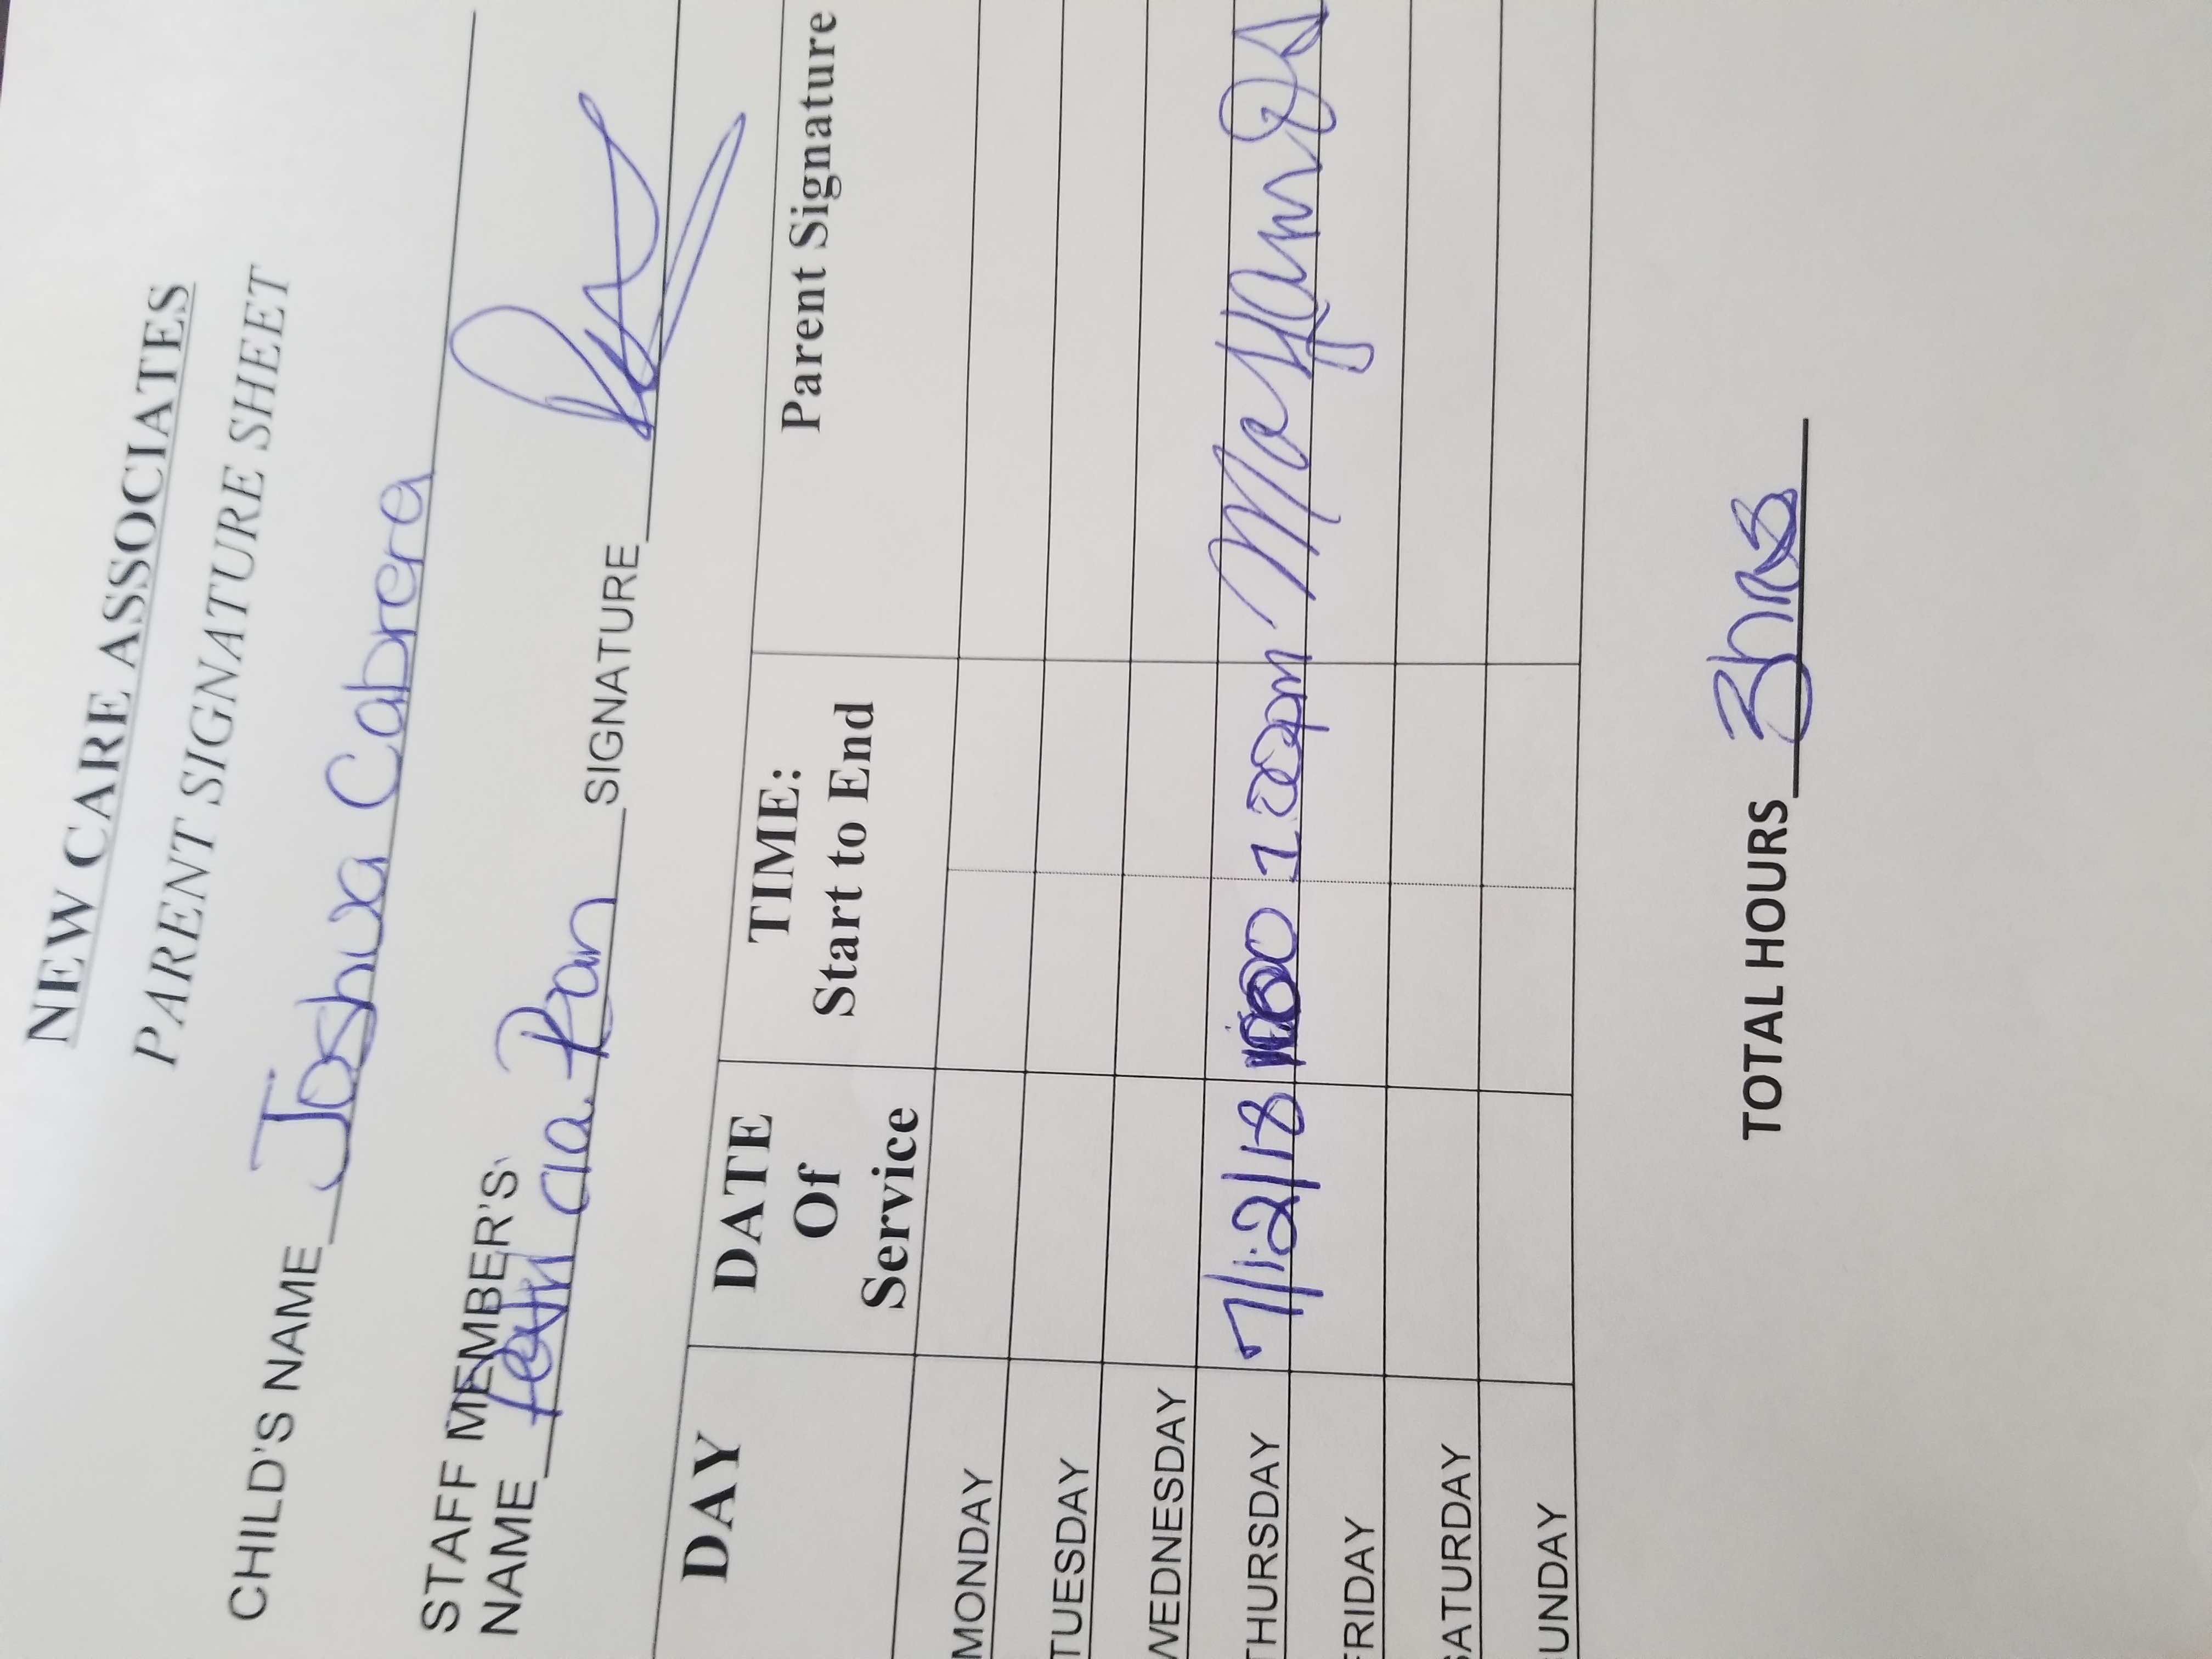 NEW CARE ASSOCIATES
PARENT SIGNATURE SHEET
CHILD'S NAME Joshua Cabrera
STAFF MEMBER'S
NAME Patricia Ran SIGNATURE
DAY DATE Of Service TIME: Start to End Parent Signature
MONDAY
TUESDAY
WEDNESDAY
THURSDAY 7/12/18 1:00pm
FRIDAY
SATURDAY
SUNDAY
TOTAL HOURS 3hrs